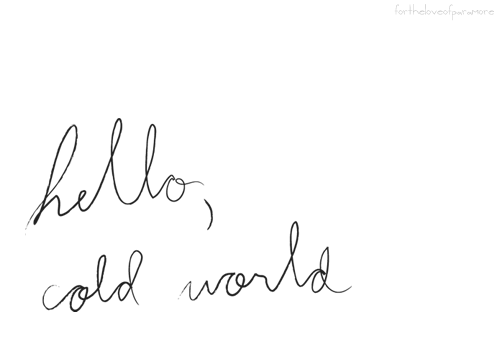 fortheloveofparamore
hello,
cold world